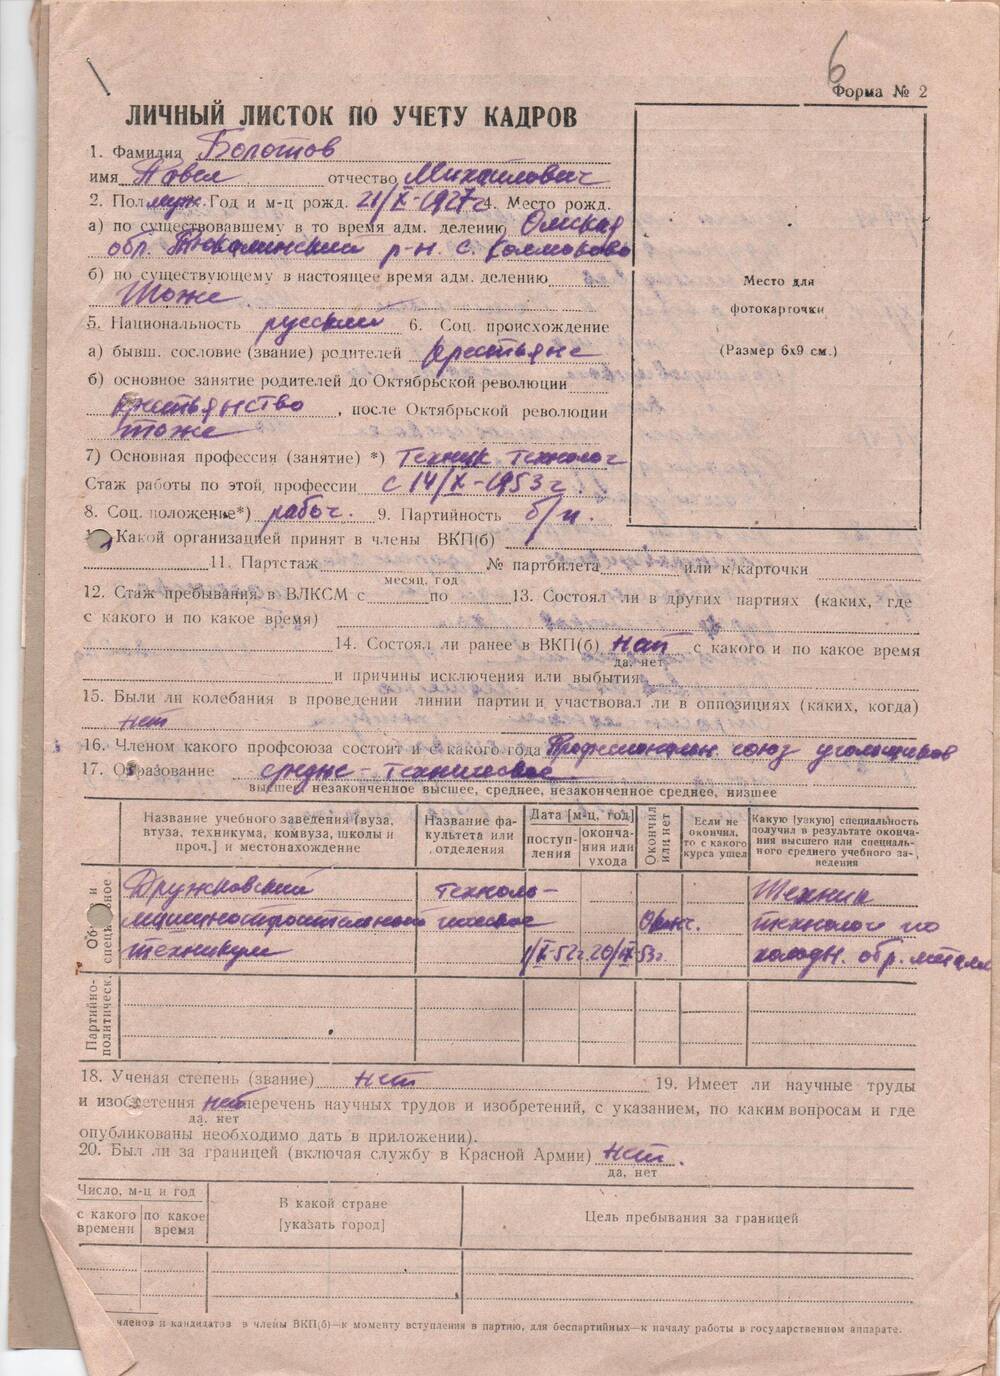 6
Форма № 2
ЛИЧНЫЙ ЛИСТОК ПО УЧЕТУ КАДРОВ
1. Фамилия Болотов
имя Павел отчество Михайлович
2. Пол муж. Год и м-ц рожд. 21/X-1927г 4. Место рожд.
а) по существовавшему в то время адм. делению Омская
обл. Тюкалинский р-н. с. Колмаково
б) по существующему в настоящее время адм. делению
Тоже
5. Национальность русский 6. Соц. происхождение
а) бывш. сословие (звание) родителей Крестьяне
б) основное занятие родителей до Октябрьской революции
крестьянство, после Октябрьской революции
тоже
7) Основная профессия (занятие) *) Техник технолог
Стаж работы по этой профессии с 14/X-1953г.
8. Соц. положение*) рабоч. 9. Партийность б/п.
Место для
фотокарточки
(Размер 6х9 см.)
Какой организацией принят в члены ВКП(б)
11. Партстаж № партбилета или к/карточки
месяц, год
12. Стаж пребывания в ВЛКСМ с по 13. Состоял ли в других партиях (каких, где
с какого и по какое время)
14. Состоял ли ранее в ВКП(б) нет с какого и по какое время
да, нет
и причины исключения или выбытия
15. Были ли колебания в проведении линии партии и участвовал ли в оппозициях (каких, когда)
нет
16. Членом какого профсоюза состоит и с какого года Профессиональн. союз угольщиков
17. Образование средне-техническое
высшее, незаконченное высшее, среднее, незаконченное среднее, низшее
Название учебного заведения (вуза, втуза, техникума, комвуза, школы и проч.] и местонахождение
Название факультета или отделения
Дата [м-ц, год]
поступления
окончания или ухода
Окончил или нет
Если не окончил, то с какого курса ушел
Какую [узкую] специальность получил в результате окончания высшего или специального среднего учебного заведения
Дружковский техноло- Техник
машиностроительного гическое Оконч. технолог по
техникум 52г. 53г. холодн. обр. металл
Партийно-политическ.
18. Ученая степень (звание) нет 19. Имеет ли научные труды
и изобретения нет перечень научных трудов и изобретений, с указанием, по каким вопросам и где
да, нет
опубликованы необходимо дать в приложении).
20. Был ли за границей (включая службу в Красной Армии) нет.
да, нет
Число, м-ц и год
с какого времени
по какое время
В какой стране
[указать город]
Цель пребывания за границей
членов и кандидатов в члены ВКП(б)—к моменту вступления в партию, для беспартийных—к началу работы в государственном аппарате.